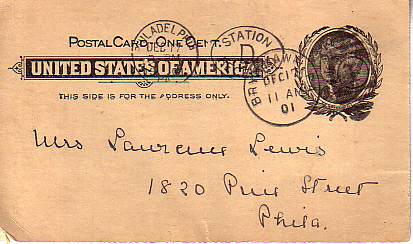 POSTAL CARD ONE CENT.
UNITED STATES OF AMERICA
THIS SIDE IS FOR THE ADDRESS ONLY.
PHILADELP
DEC 17
STATION
D
BRYN MAWR
DEC 17
11 AM
01
Mrs Lawrence Lewis
1820 Pine Street
Phila.